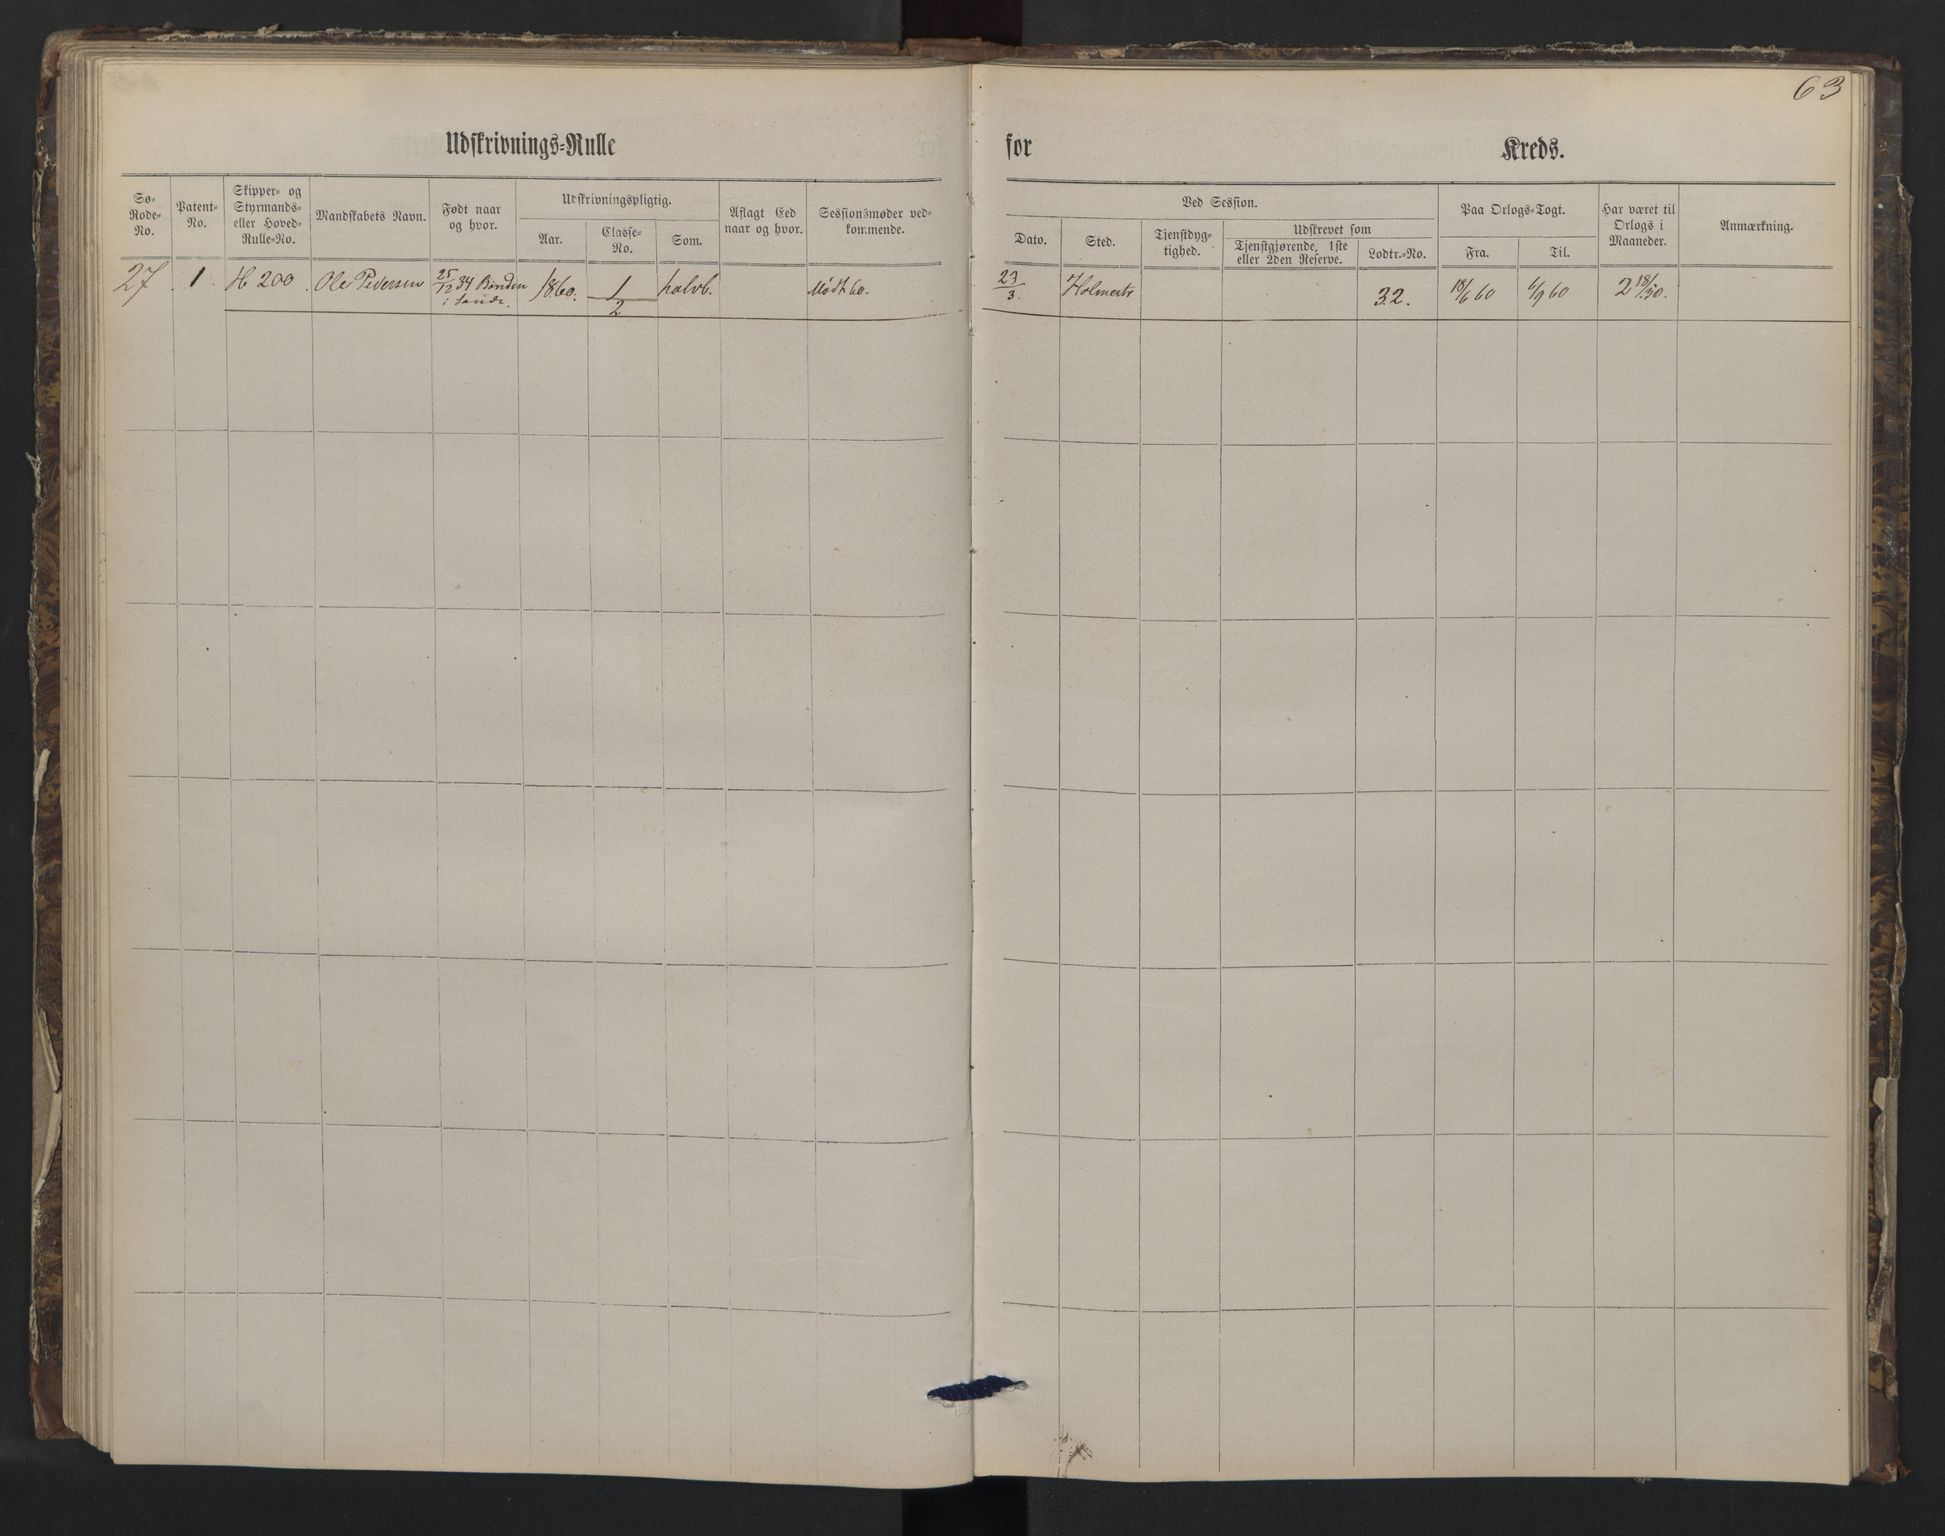 63
Udskrivnings-Rulle for Kreds.
Sø-Rode-No.
Patent-No.
Skipper- og Styrmands- eller Hoved-Rulle-No.
Mandskabets Navn.
Født naar og hvor.
Udskrivningspligtig.
Aar.
Classe-No.
Som.
Aflagt Eed naar og hvor.
Sessionsmøder vedkommende.
Ved Session.
Dato.
Sted.
Tjenstdygtighed.
Udskrevet som
Tjenstgjørende, 1ste eller 2den Reserve.
Lodtr.-No.
Paa Orlogs-Togt.
Fra.
Til.
Har været til Orlogs i Maaneder.
Anmærkning.
27 1 H 200 Ole Pedersen 25/12 34 Bonden i Sande. 1860. 1/2 halvb. Mødt 60. 23/3. Holmestr 32. 18/6 60 6/9 60 2 18/30.